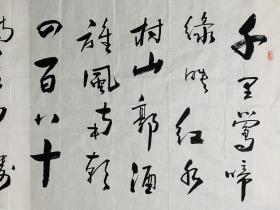 千里鶯啼
綠映紅水
村山郭酒
旗風南朝
四百八十